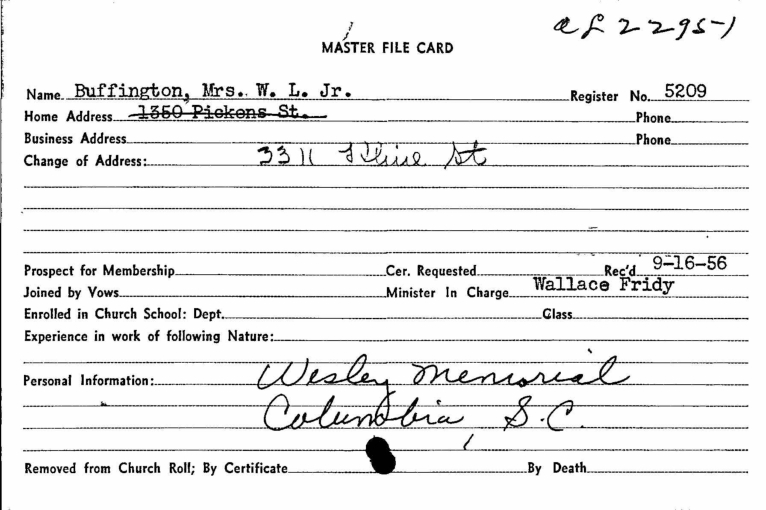 al 22951
MASTER FILE CARD
Name Buffington, Mrs. W. L. Jr. Register No. 5209
Home Address 1350 Pickens St. Phone
Business Address Phone
Change of Address: 3311 St
Prospect for Membership Cer. Requested Rec'd 9-16-56
Joined by Vows Minister In Charge Wallace Fridy
Enrolled in Church School: Dept. Class
Experience in work of following Nature:
Personal Information: Wesley Memorial
Columbia, S.C.
Removed from Church Roll; By Certificate By Death